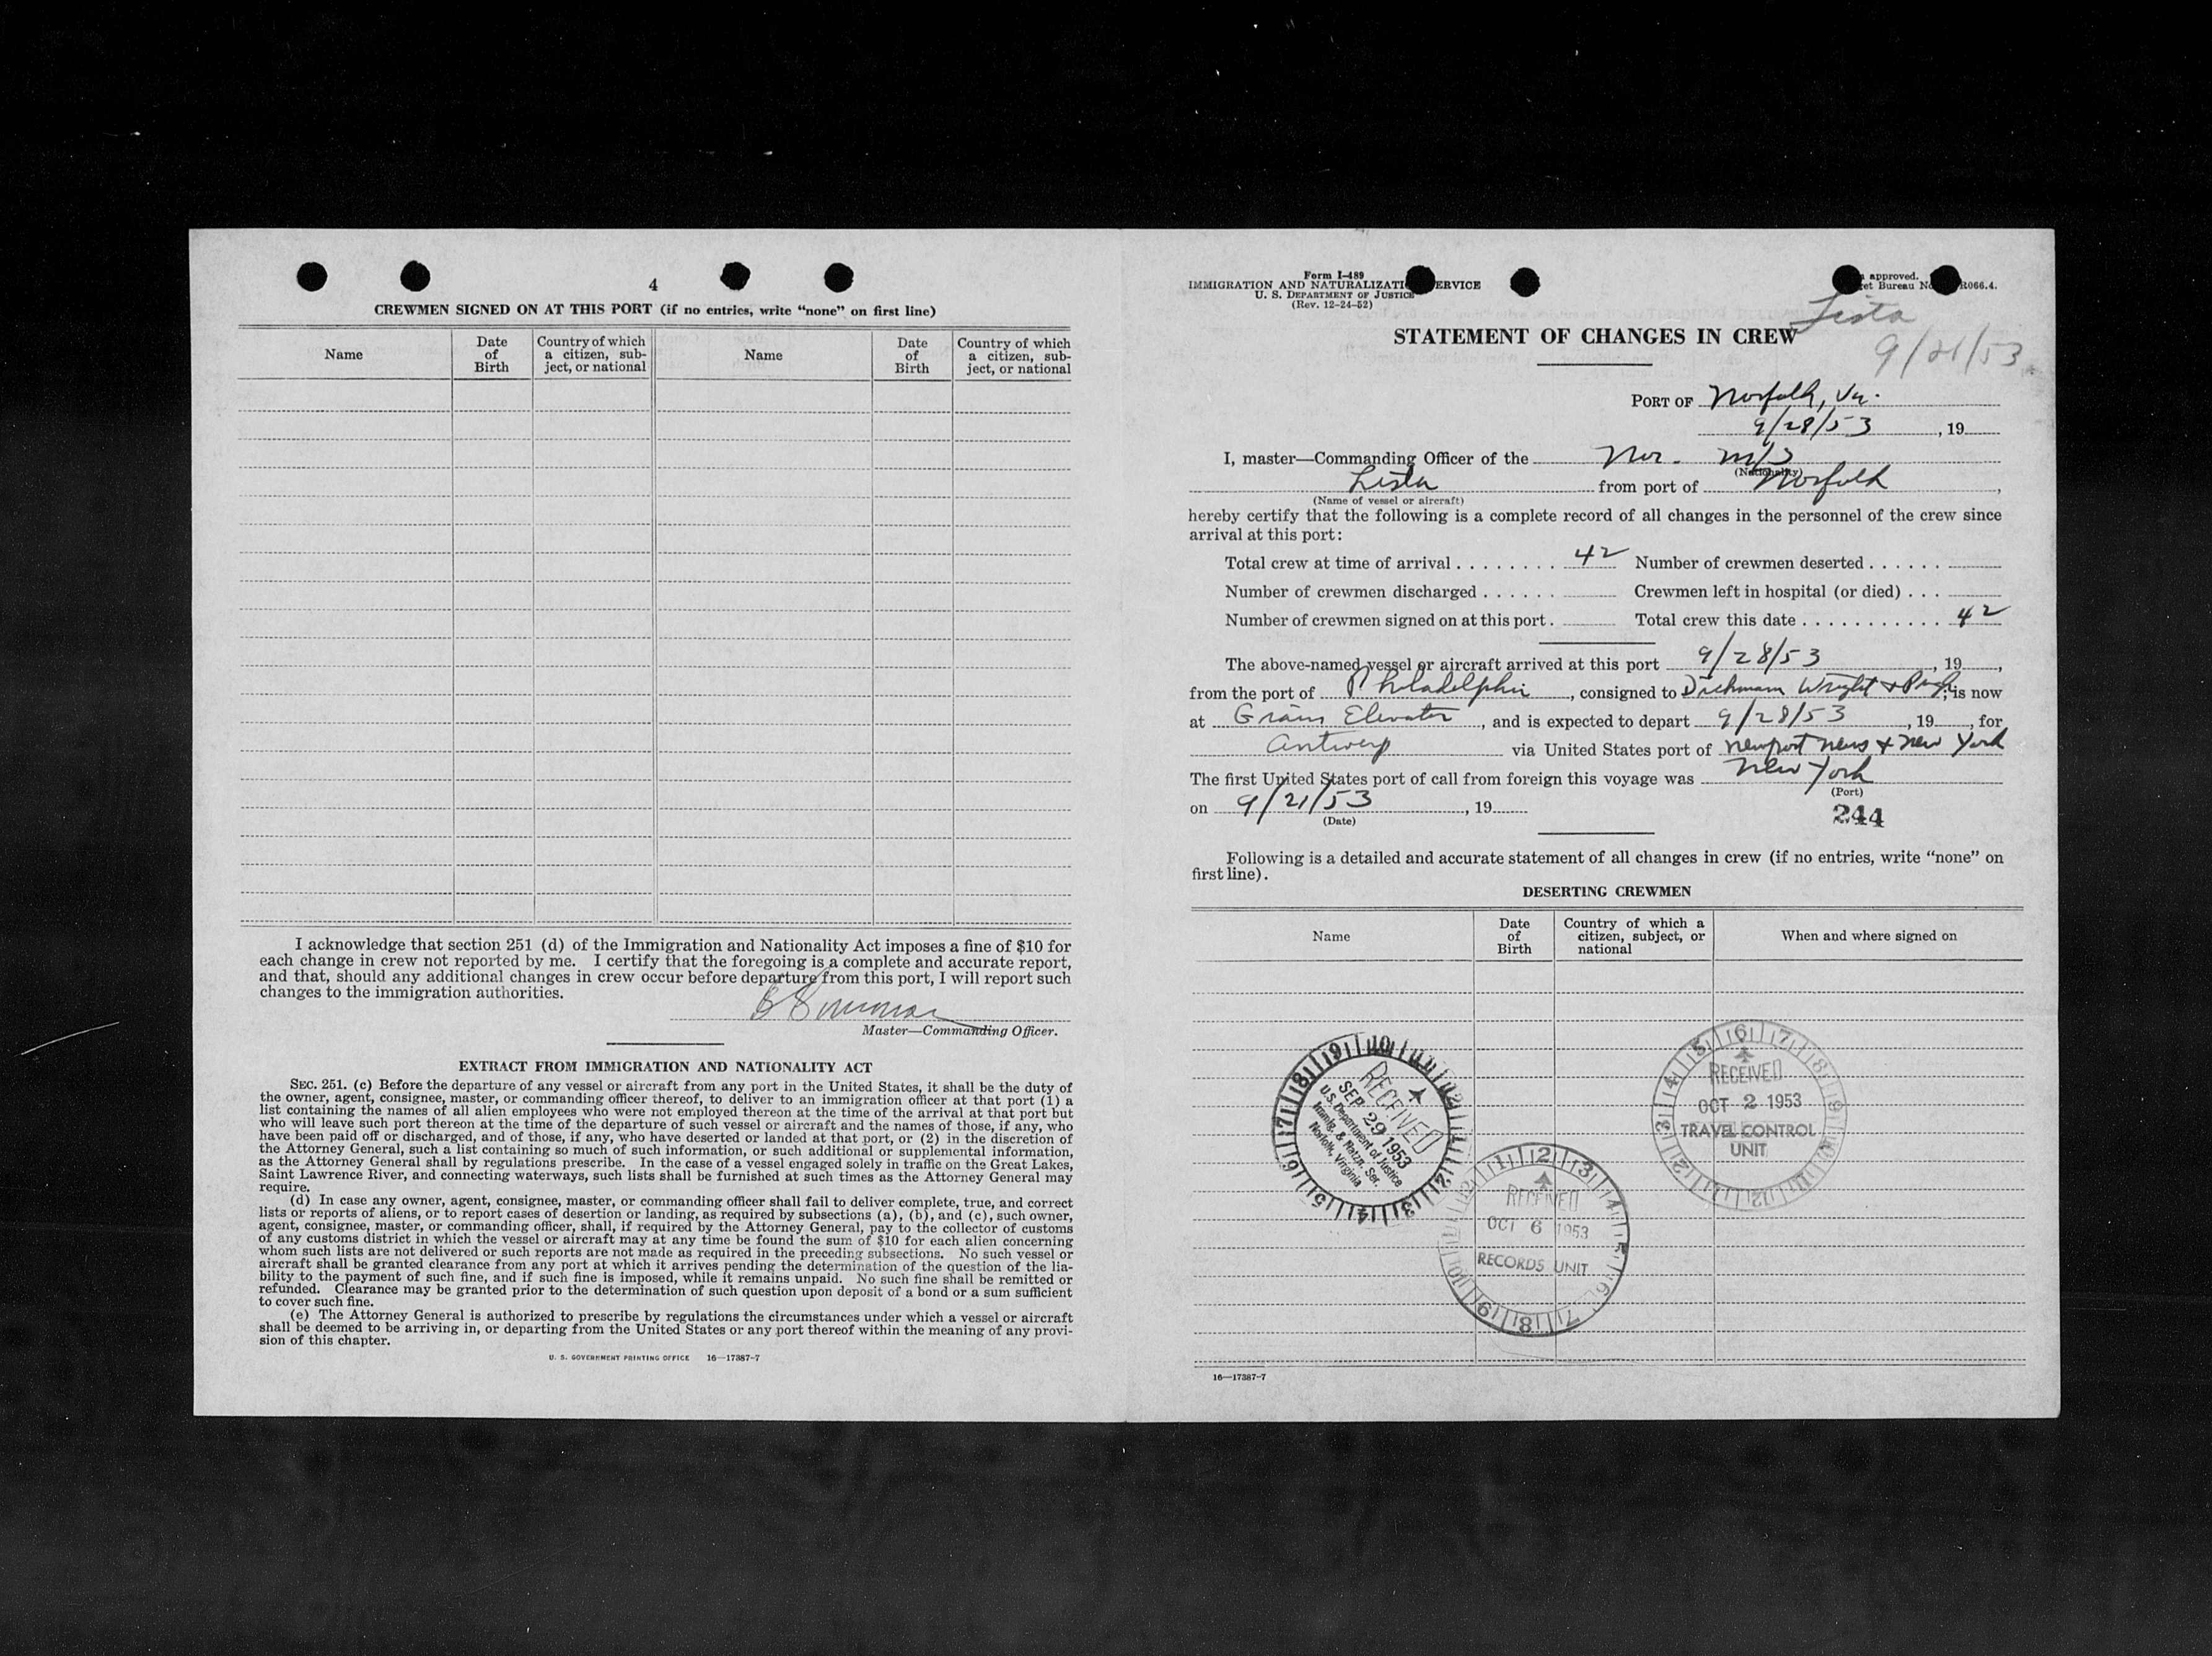 4
CREWMEN SIGNED ON AT THIS PORT (if no entries, write "none" on first line)
Name
Date of Birth
Country of which a citizen, subject, or national
Name
Date of Birth
Country of which a citizen, subject, or national
I acknowledge that section 251 (d) of the Immigration and Nationality Act imposes a fine of $10 for
each change in crew not reported by me. I certify that the foregoing is a complete and accurate report,
and that, should any additional changes in crew occur before departure from this port, I will report such
changes to the immigration authorities.
Master—Commanding Officer.
EXTRACT FROM IMMIGRATION AND NATIONALITY ACT
SEC. 251. (c) Before the departure of any vessel or aircraft from any port in the United States, it shall be the duty of
the owner, agent, consignee, master, or commanding officer thereof, to deliver to an immigration officer at that port (1) a
list containing the names of all alien employees who were not employed thereon at the time of the arrival at that port but
who will leave such port thereon at the time of the departure of such vessel or aircraft and the names of those, if any, who
have been paid off or discharged, and of those, if any, who have deserted or landed at that port, or (2) in the discretion of
the Attorney General, such a list containing so much of such information, or such additional or supplemental information,
as the Attorney General shall by regulations prescribe. In the case of a vessel engaged solely in traffic on the Great Lakes,
Saint Lawrence River, and connecting waterways, such lists shall be furnished at such times as the Attorney General may
require.
(d) In case any owner, agent, consignee, master, or commanding officer shall fail to deliver complete, true, and correct
lists or reports of aliens, or to report cases of desertion or landing, as required by subsections (a), (b), and (c), such owner,
agent, consignee, master, or commanding officer, shall, if required by the Attorney General, pay to the collector of customs
of any customs district in which the vessel or aircraft may at any time be found the sum of $10 for each alien concerning
whom such lists are not delivered or such reports are not made as required in the preceding subsections. No such vessel or
aircraft shall be granted clearance from any port at which it arrives pending the determination of the question of the lia-
bility to the payment of such fine, and if such fine is imposed, while it remains unpaid. No such fine shall be remitted or
refunded. Clearance may be granted prior to the determination of such question upon deposit of a bond or a sum sufficient
to cover such fine.
(e) The Attorney General is authorized to prescribe by regulations the circumstances under which a vessel or aircraft
shall be deemed to be arriving in, or departing from the United States or any port thereof within the meaning of any provi-
sion of this chapter.
U. S. GOVERNMENT PRINTING OFFICE 16—17387-7
Form I-489
IMMIGRATION AND NATURALIZATI ERVICE
U. S. DEPARTMENT OF JUSTICE
(Rev. 12-24-52)
approved.
et Bureau No R066.4.
Lista
9/21/53
STATEMENT OF CHANGES IN CREW
PORT OF Norfolk, Va.
9/28/53, 19
I, master—Commanding Officer of the Nor. m/s
(Nationality)
Lista from port of Norfolk,
(Name of vessel or aircraft)
hereby certify that the following is a complete record of all changes in the personnel of the crew since
arrival at this port:
Total crew at time of arrival . . . . . . . . 42 Number of crewmen deserted . . . . . .
Number of crewmen discharged . . . . . . Crewmen left in hospital (or died) . . .
Number of crewmen signed on at this port . Total crew this date . . . . . . . . . . . 42
The above-named vessel or aircraft arrived at this port 9/28/53, 19,
from the port of Philadelphia, consigned to Dichmann Wright & Pugh, is now
at Grain Elevator, and is expected to depart 9/28/53, 19, for
Antwerp via United States port of Newport News & New York
The first United States port of call from foreign this voyage was New York
(Port)
on 9/21/53, 19
(Date)
244
Following is a detailed and accurate statement of all changes in crew (if no entries, write "none" on
first line).
DESERTING CREWMEN
Name
Date of Birth
Country of which a citizen, subject, or national
When and where signed on
RECEIVED
SEP 29 1953
U.S. Department of Justice
Immig. & Natzn. Ser.
Norfolk, Virginia
RECEIVED
OCT 2 1953
TRAVEL CONTROL
UNIT
RECEIVED
OCT 6 1953
RECORDS UNIT
16—17387-7